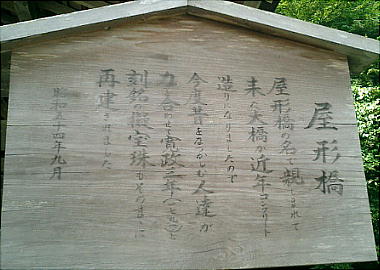 屋形橋
屋形橋の名で親しまれて
来た大橋が近年コンクリート
造りになりましたので
今度昔をなつかしむ人達が
力を合わせて寛政三年(一七九一)と
刻銘の擬宝珠もそのままに
再建されました
昭和五十四年九月